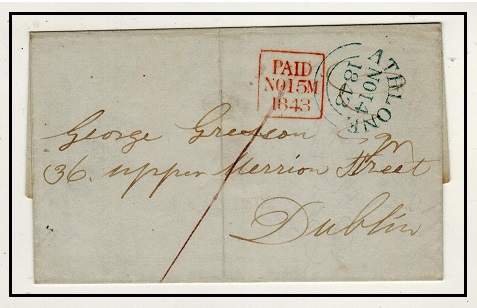 PAID
NO15M
1843
ATHLONE
NO14
1843
George Greeson Esqr
36. upper Merrion Street
Dublin